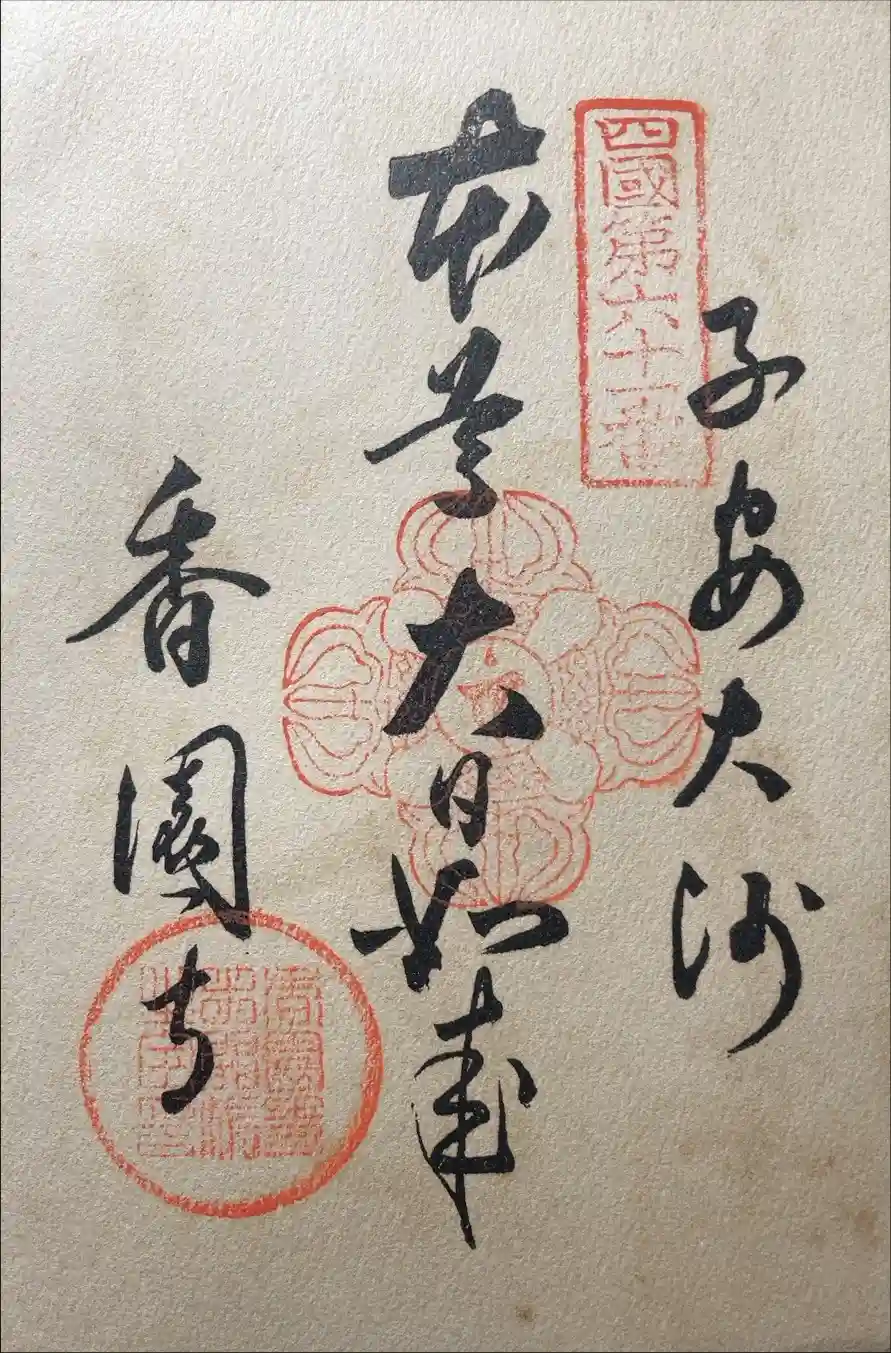 四國第六十一番
子安大师
本尊大日如来
香園寺